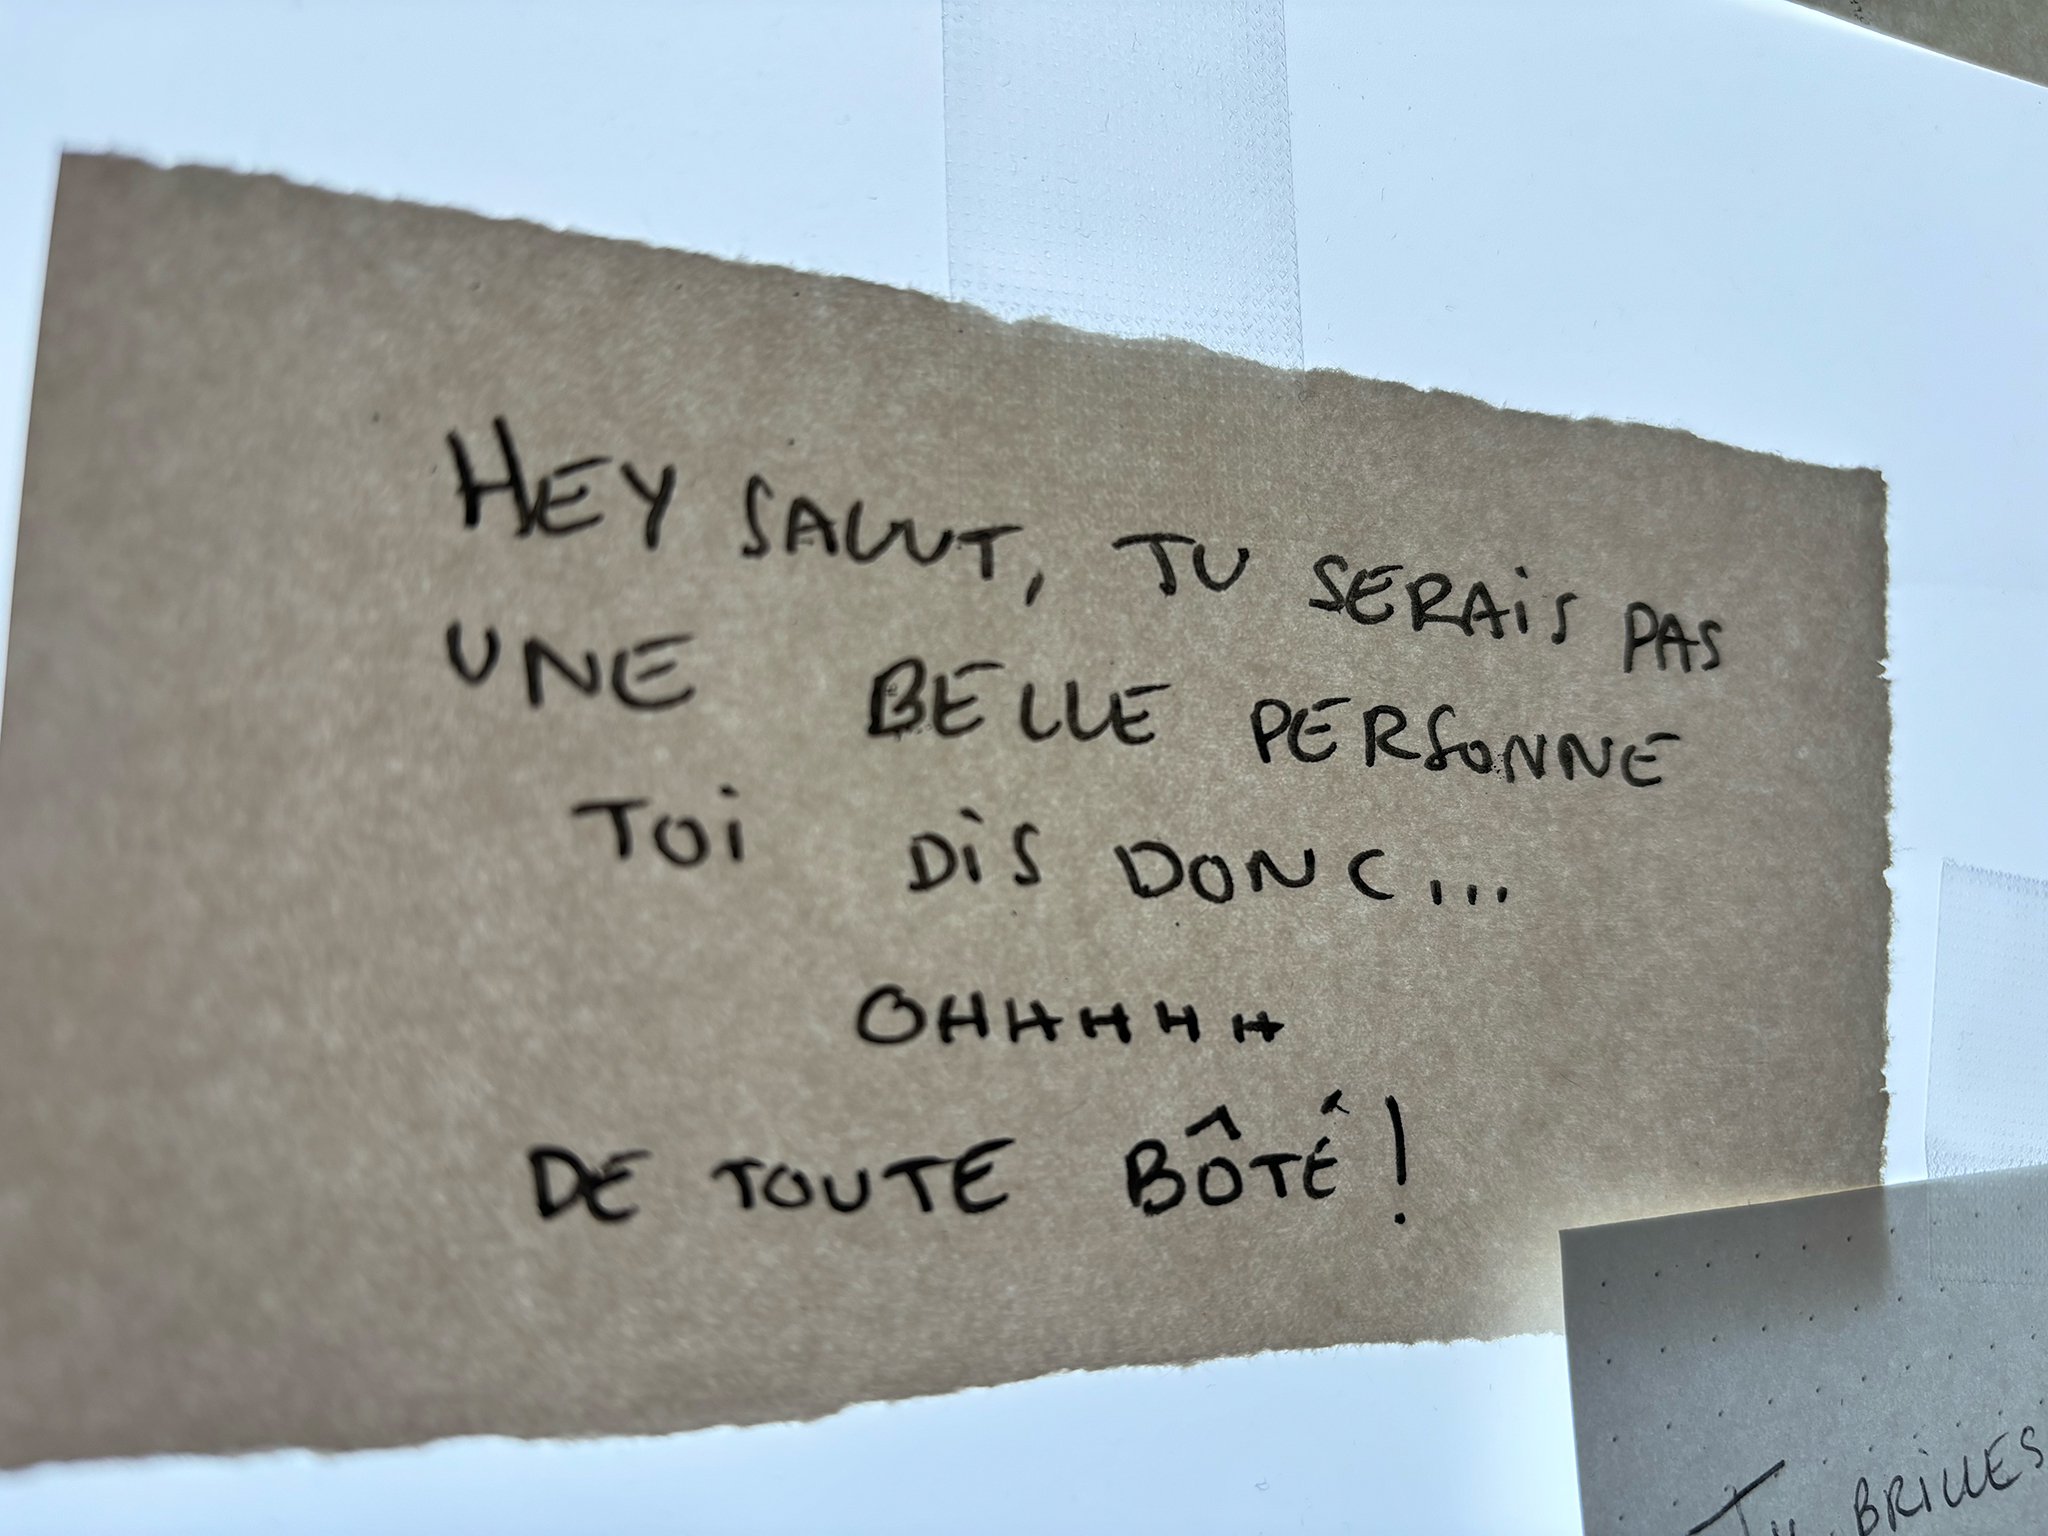 HEY SALUT, TU SERAIS PAS
UNE BELLE PERSONNE
TOI DIS DONC...
OHHHHH
DE TOUTE BÔTÉ !
TU BRILLES